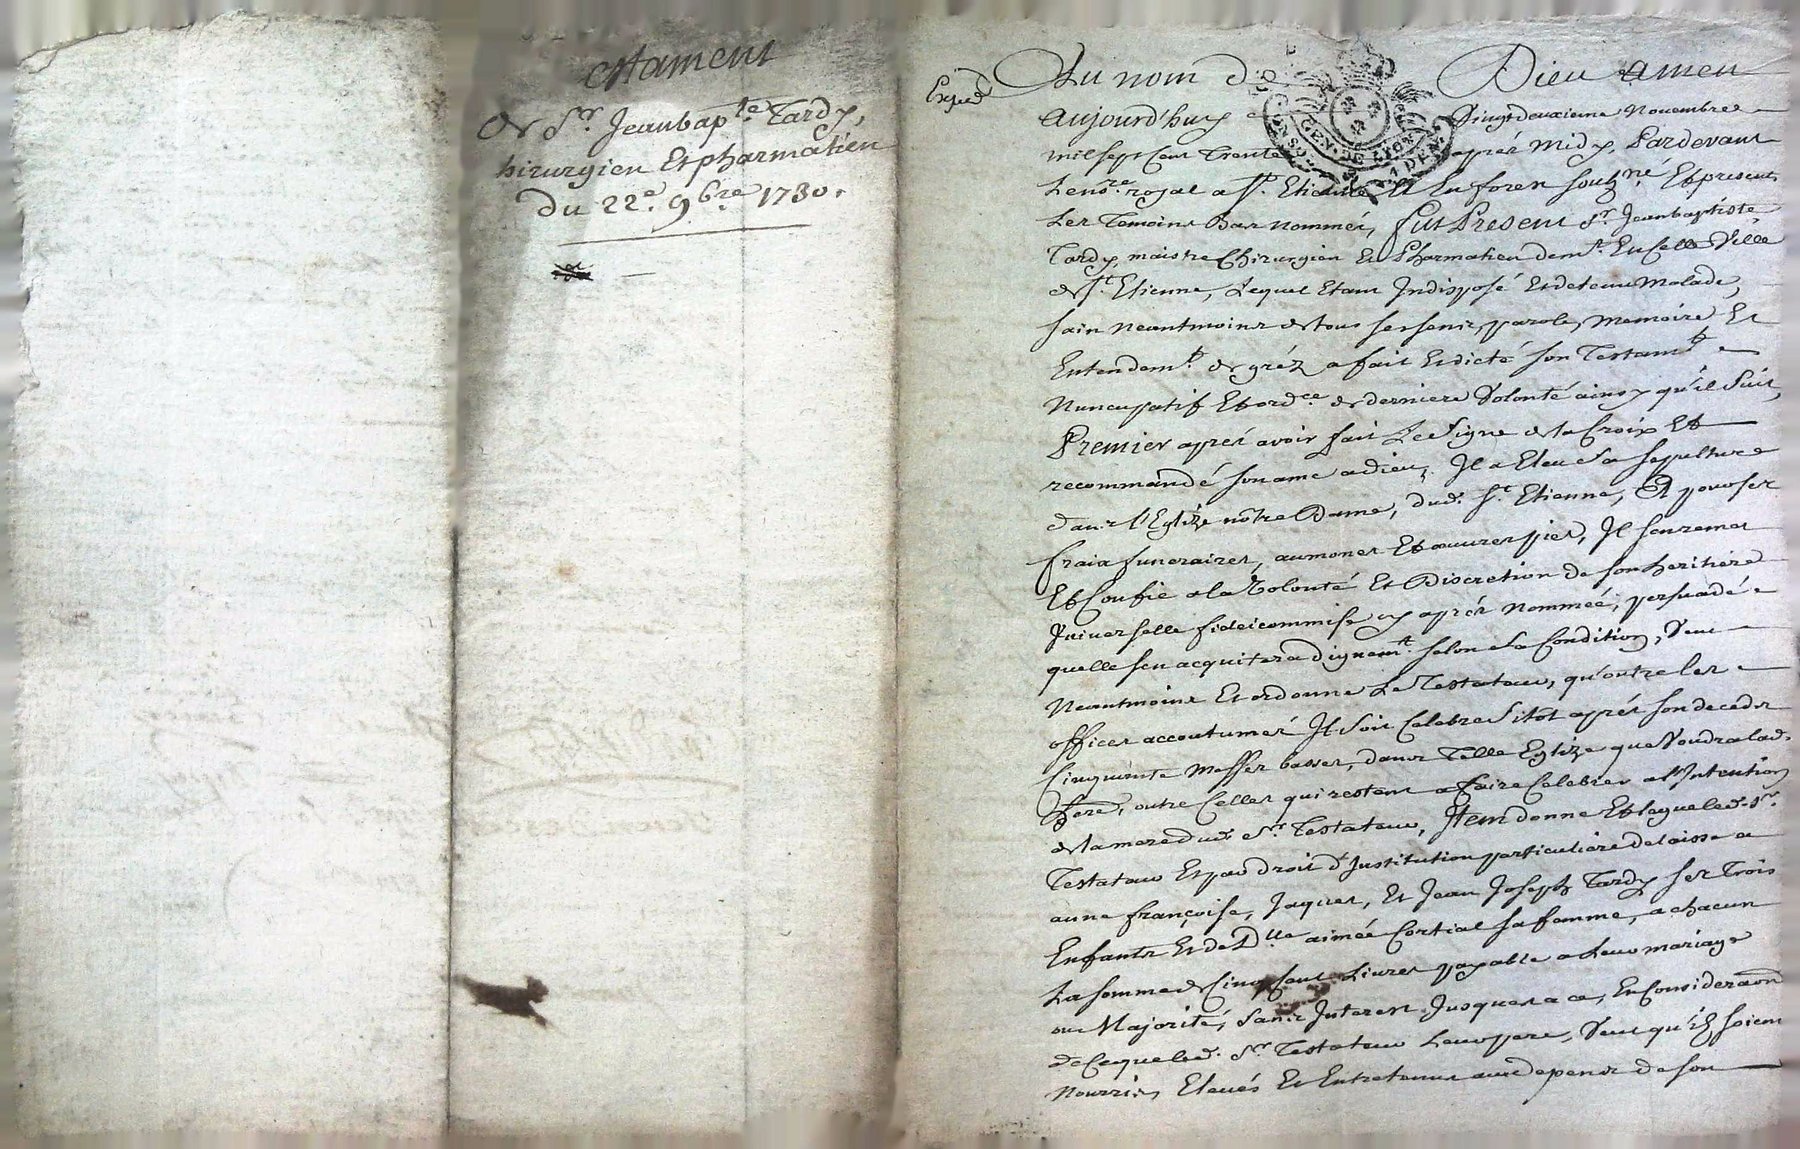 estament
de Sr. Jeanbapte. Tardy,
hirurgien Et pharmatien
du 22e. 9bre 1730.
Exped
Au nom de Dieu amen
Aujourd'huy Vingtdeuxieme Novembre
mil sept Cent Trente aprés Midy, Pardevant
Le nore. royal a St. Etienne En forest souzné Et present
Les Temoins Bas nommés, fut Present Sr. Jeanbaptiste
Tardy, maistre Chirurgien Et Pharmatien demt. En Celle Ville
de St. Etienne, Lequel Etant Indisposé Et detenu Malade,
sain neantmoins de tous ses sens, parole, memoire Et
Entendemt. de gréz a fait Et dicté son Testamt.
Nuncupatif Et ordce. de derniere Volonté ainsy qu'il suit,
Premier aprés avoir fait Le Signe de la Croix Et
recommandé son ame a dieu, Il a Eleu Sa sepulture
dans l'Eglize nôtre Dame, dud. St. Etienne, Et pour ses
fraix funeraires, aumones Et œuvres pies, Il s'en remet
Et Confie a la Volonté Et Discretion de son heritiere
Universelle fideicommise cy aprés nommée, persuadé
quelle s'en acquitera dignemt. selon Sa Condition, Veut
Neantmoins Et ordonne Le Testateur, qu'outre les
offices accoutumés Il soit Celebré Sitôt aprés son decedz
Cinquante Messes basses, dans Telle Eglize que Voudra lad.
here, outre Celles qui restent a faire Celebrer a l'Intention
de la mere dud. Sr. Testateur, Item donne Et legue led. Sr.
Testateur Et par droit d'Institution particuliere delaisse a
anne françoise, Jaques, Et Jean Joseph Tardy ses Trois
Enfants Et de Dlle aimée Cortial sa femme, a chacun
La somme de Cinq Cent Livres payable a Leur mariage
ou Majorité, Sans Interest Jusques a ce, En Consideraon
de Ce que led. Sr. Testateur Leur pere, Veut qu'ilz soient
Nourris, Elevés Et Entretenus aux depens de son